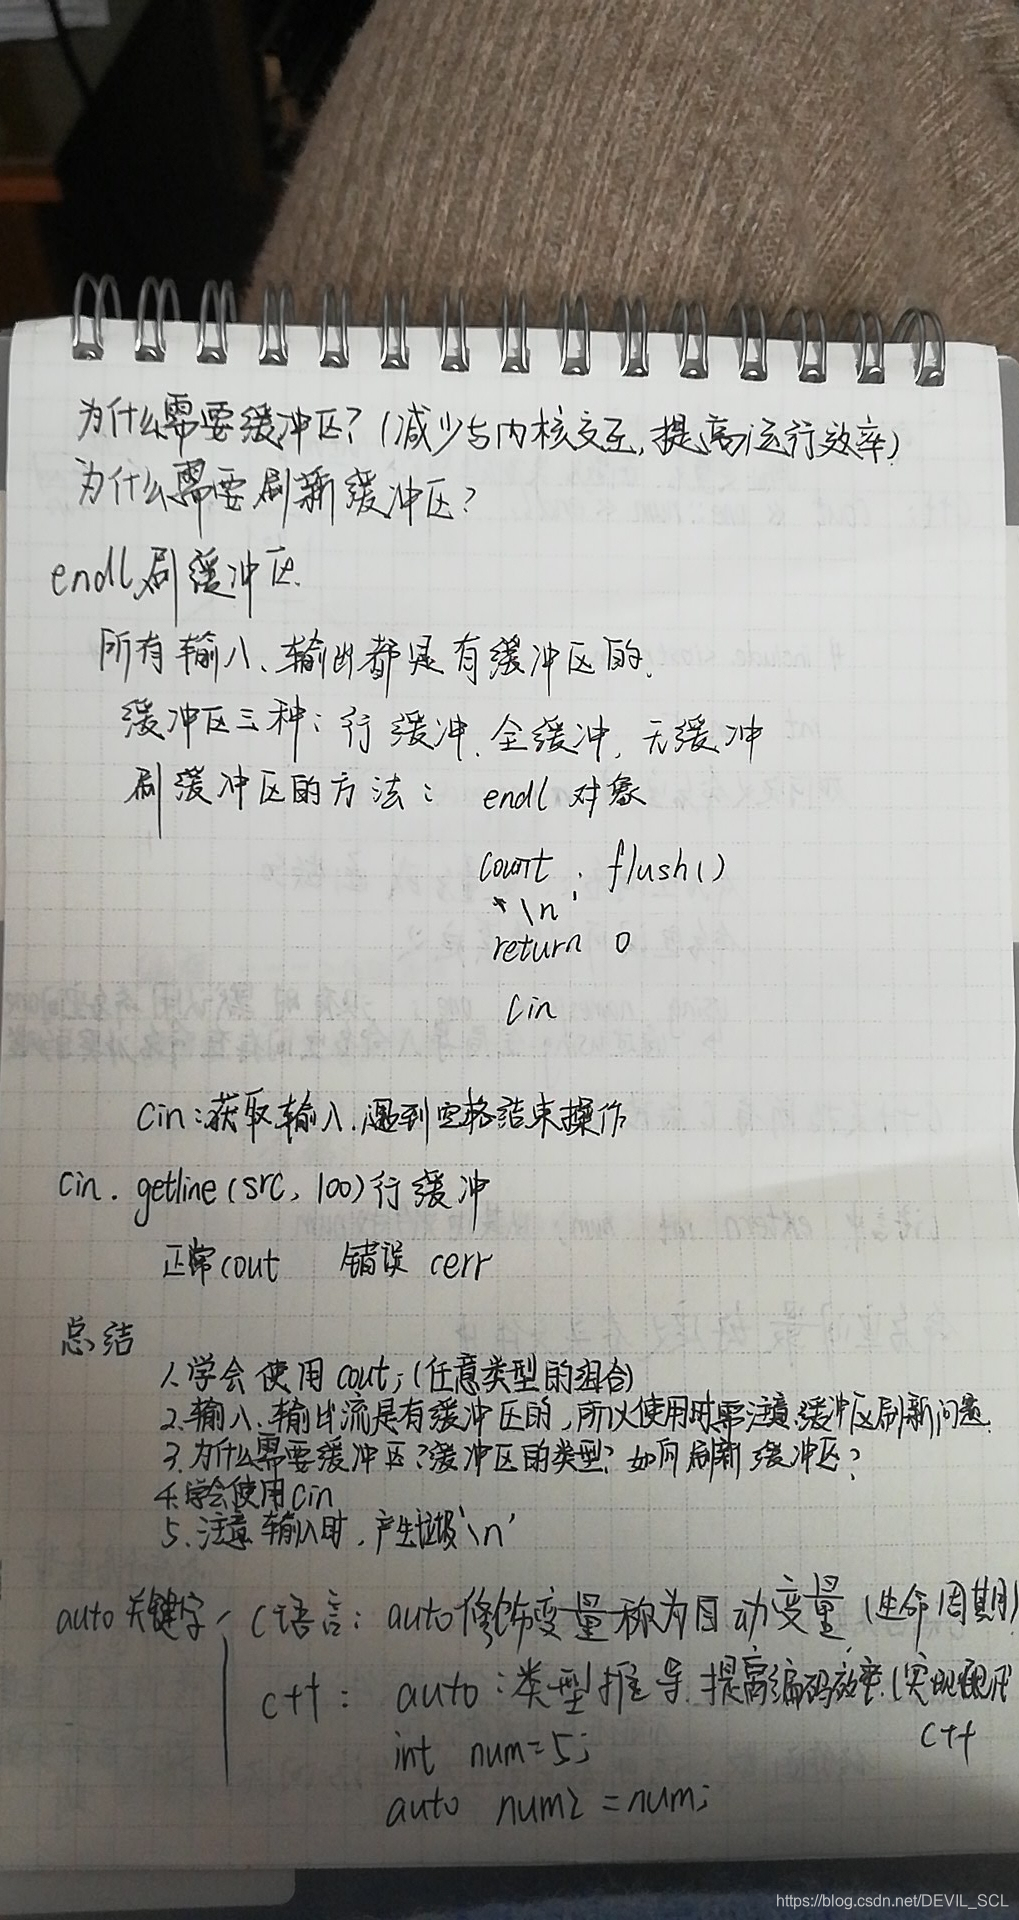 为什么需要缓冲区?(减少与内核交互,提高运行效率)
为什么需要刷新缓冲区?
endl刷缓冲区.
所有输入、输出都是有缓冲区的.
缓冲区三种:行缓冲、全缓冲,无缓冲
刷缓冲区的方法: endl 对象
count . flush()
'\n'
return 0
cin
cin:获取输入.遇到空格结束操作
cin. getline(src, 100)行缓冲
正常cout 错误 cerr
总结
1.学会使用 cout;(任意类型的组合)
2.输入、输出流是有缓冲区的,所以使用时需注意缓冲区刷新问题.
3.为什么需要缓冲区?缓冲区的类型?如何刷新缓冲区?
4.学会使用cin
5.注意输入时,产生垃圾'\n'
auto关键字 C语言: auto修饰变量称为自动变量 (生命周期)
C++: auto:类型推导.提高编码效率.(实现
C++
int num=5;
auto num2 =num;
https://blog.csdn.net/DEVIL_SCL